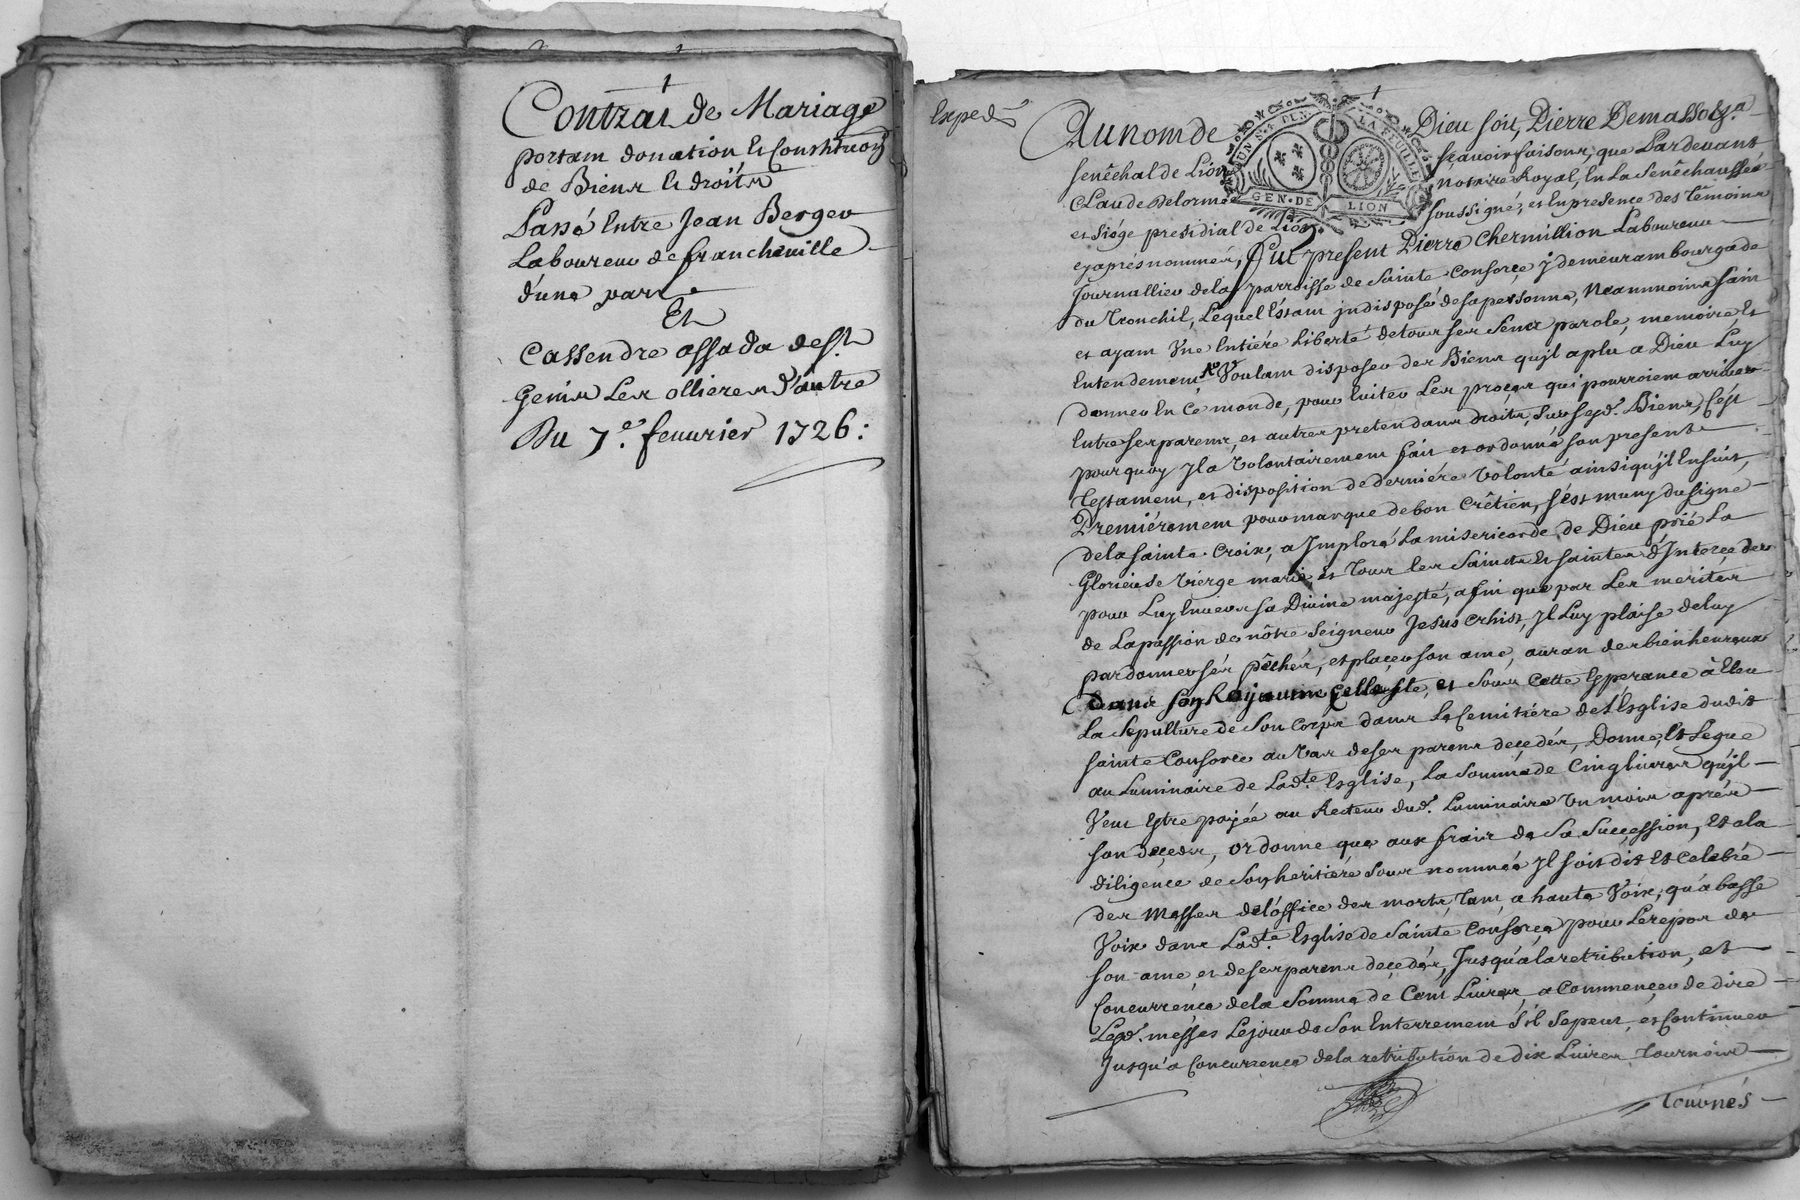 Contrat de Mariage
portant donation et Constitution
de Biens et droits
Passé Entre Jean Berger
Laboureur de francheville
d'une part
Et
Cassendre assada de St
Genis Les ollieres d'autre
Du 7e. feuurier 1726:
Exped
Au nom de Dieu soit, Pierre Demassoz
senêchal de Lion sçauoir faisons, que Pardeuant
Claude Delorme Notaire Royal, En La Senêchaussée
et siége presidial de Lion soussigné, et En presence des Témoins
UN S DEN LA FEUILLE
GEN·DE LION
cyaprés nommés, fut present Pierre Chermillion Laboureur
Journallier de la parroisse de Sainte Consorçe y demeurant bourg de
du Tronchil, Lequel Estant jndisposé de sa personne, Neanmoins sain
et ayant Vne Entiére Liberté de tous ses Sens parole, memoire Et
Entendement, & Voulant disposer des Biens qu'jl a plu a Dieu Luy
donner En ce monde, pour Euiter Les proçes qui pourroient arriuer
Entre ses parens, et autres pretendans droits, sur sesd. Biens, C'est
pourquoy Jl a volontairement fait et ordonné son present
Testament, et disposition de derniére Volonté ainsi qu'jl Ensuit,
Premiérement pour marque de bon Crêtien, s'est muny du signe
de la sainte Croix, a Jmploré La misericorde de Dieu prié La
Glorieuse vierge marie et Tous les Saints et saintes d'Interçeder
pour Luy Enuers sa Diuine majesté, afin que par Les merites
de La passion de nôtre Seigneur Jesus Crhist, Jl Luy plaise de luy
pardonner sés pêchés, et plaçer son ame, au ran des bienheureux
dans son Royaume Celleste, et sous cette Esperance à Eleu
La Sepulture de Son Corps dans Le Cemitiére de L'Esglise dudit
sainte Consorce au Vas de ses parens deçedés, Donne, Et Legue
au Luminaire de Lad.te Esglise, La somme de Cinq liures qu'jl
Veut Estre payée au Recteur dud. Luminaire Vn mois aprés
son deçeds, ordonne que aux frais de Sa Suççession, Et a la
diligence de Son heritiére sous nommée Jl soit dit Et Celebré
des Messes de l'office des morts, Tant a haute Voix, qu'a basse
Voix dans Lad.te Esglise de Sainte Consorçe pour Le repos de
son ame, et de ses parens deçedés, Jusqu'a la retribution, et
Concurrençe de la Somme de Cent Liures, a Commençer de dire
Lesd. messes Le jour de Son Enterrement S'il se peut, et Continuer
Jusqu'a Concurrence de la retribution de dix Liures Tournois